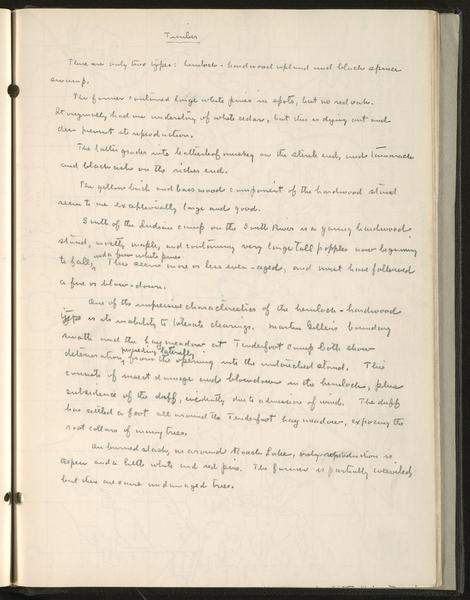 Timber
There are only two types: hemlock-hardwood upland and black spruce
swamp.
The former contained large white pines in spots, but no red oak.
It originally had an understory of white cedar, but this is dying out and
deer prevent its reproduction.
The latter grades into leatherleaf muskeg on the sterile end, and tamarack
and black ash on the richer end.
The yellow birch and basswood component of the hardwood stand
seem to me exceptionally large and good.
South of the Indian camp on the South River is a young hardwood
stand, mostly maple, and containing very large tall popples now beginning
and a few white pines
to fall. This seems more or less even-aged, and must have followed
a fire or blow-down.
One of the impressive characteristics of the hemlock-hardwood
type is its inability to tolerate clearings. Martin boundary
swath and the hay meadow at Tenderfoot Camp both show
proceeding laterally
deterioration, from the opening into the untouched stand. This
consists of insect damage and blowdown in the hemlock, plus
subsidence of the duff, evidently due to admission of wind. The duff
has settled a foot all around the Tenderfoot hay meadow, exposing the
root collars of many trees.
On burned slash, as around Roach Lake, reproduction is
aspen and a little white and red pine. The former is partially
but there are some undamaged trees.